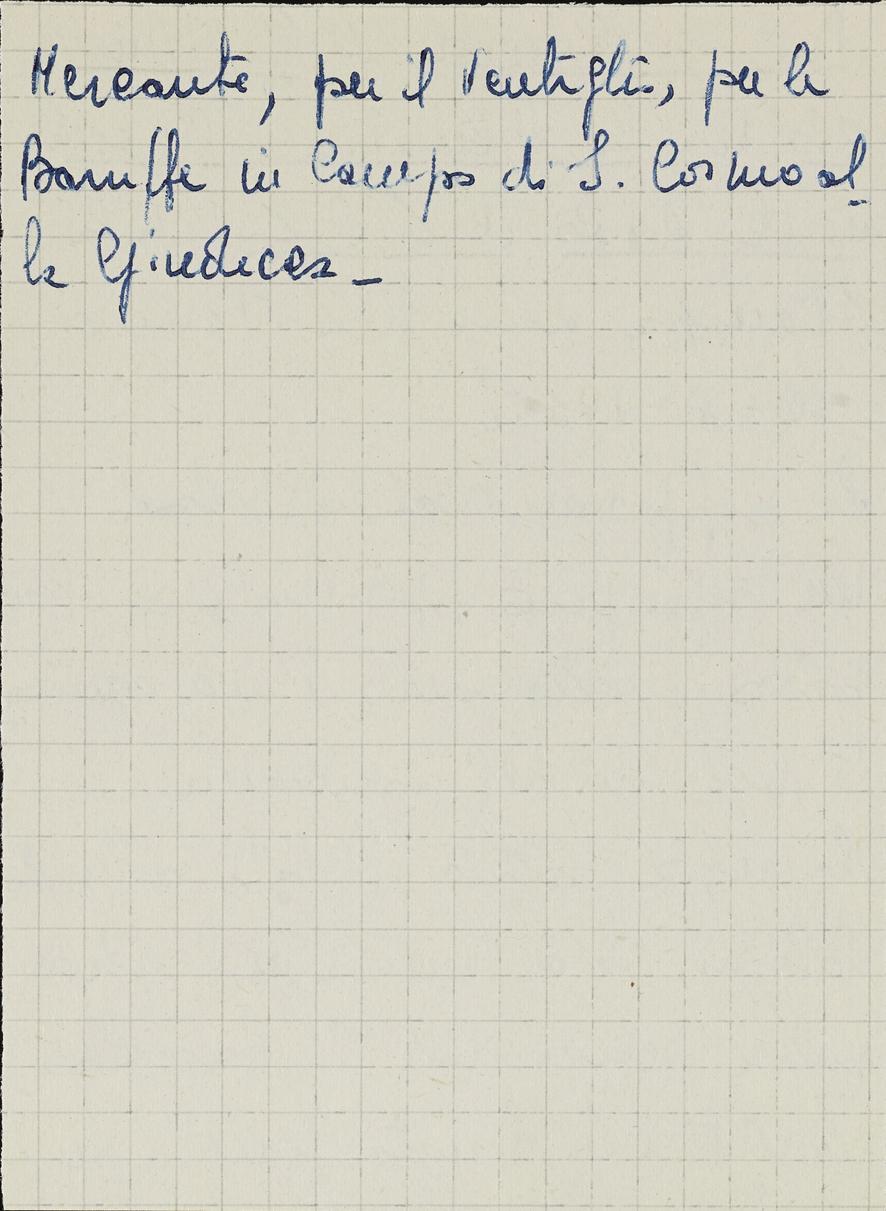 Mercante, per il Ventaglio, per le
Baruffe in Campo di S. Cosmo al-
la Giudecca –